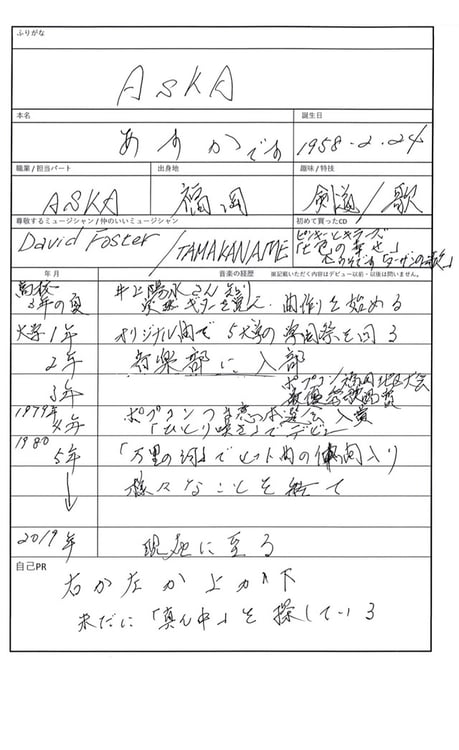 ふりがな
ASKA
本名
誕生日
あすかです
1958.2.24
職業/担当パート
出身地
趣味/特技
ASKA
福岡
剣道/歌
尊敬するミュージシャン/仲のいいミュージシャン
初めて買ったCD
David Foster/TAMAKANAME
ピンキーとキラーズ
「七色の幸せ」
年 月
音楽の経歴
※記載いただく内容はデビュー以前・以後は問いません。
高校
3年の夏
井上陽水さん
ギターを買い、曲作りを始める
大学1年
オリジナル曲で5大学の学園祭を回る
2年
音楽部に入部
3年
ポプコン福岡地区大会
最優秀歌唱賞
1979年
4年
ポプコンつま恋本選会入賞
「ひとり咲き」でデビュー
1980
5年
「万里の河」でヒット曲の仲間入り
様々なことを経て
2019年
現在に至る
自己PR
右か左か上か下
未だに「真ん中」を探している